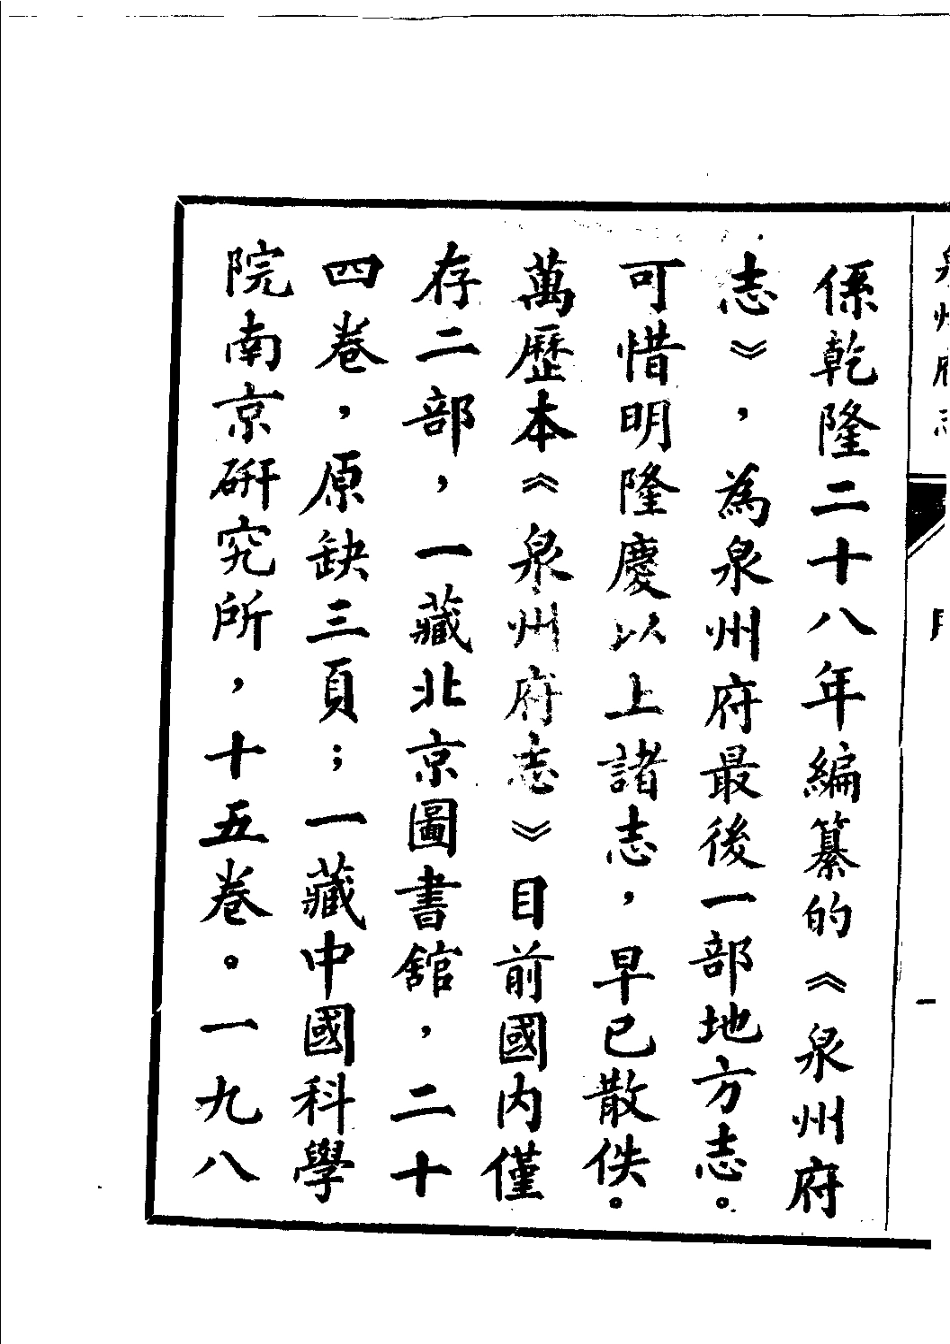 係乾隆二十八年編纂的《泉州府
志》，為泉州府最後一部地方志。
可惜明隆慶以上諸志，早已散佚。
萬歷本《泉州府志》目前國内僅
存二部，一藏北京圖書館，二十
四卷，原缺三頁；一藏中國科學
院南京研究所，十五卷。一九八